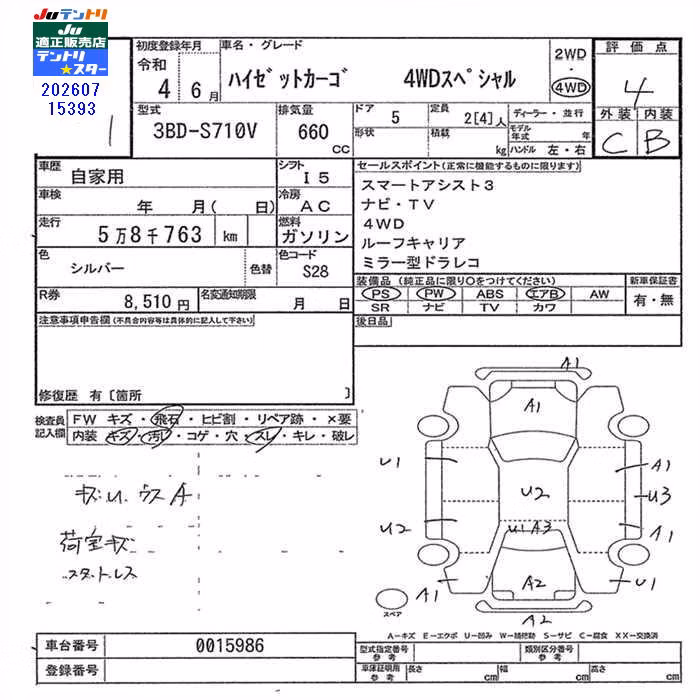 Juテントリ
Ju
適正販売店
テントリ
★スター
202607
15393
1
初度登録年月 車名・グレード 2WD 評価点
令和 4 6月 ハイゼットカーゴ 4WDスペシャル 4WD 4
型式 排気量 ドア 5 定員 2[4]人 ディーラー・並行 外装 内装
3BD-S710V 660 CC 形状 積載 kg モデル年式 年 ハンドル 左・右 C B
車歴 自家用 シフト I5 セールスポイント(正常に機能するものに限ります)
車検 年 月( 日) 冷房 AC スマートアシスト3
ナビ・TV
走行 5万8千763 km 燃料 ガソリン 4WD
ルーフキャリア
色 シルバー 色替 色コード S28 ミラー型ドラレコ
R券 8,510円 名変通知期限 月 日 装備品(純正品に限り○をつけてください) 新車保証書
PS PW ABS エアB AW 有・無
SR ナビ TV カワ
注意事項申告欄(不具合内容等は具体的に記入して下さい) 後日品
修復歴 有〔箇所 〕
検査員記入欄 FW キズ・飛石・ヒビ割・リペア跡・×要
内装 キズ・汚レ・コゲ・穴・スレ・キレ・破レ
キズU.ウスA
荷室キズ
スタットレス
A1
A1
U1 A1
U2 U3
U2 U1 A3 A1
A1 A2 U1
スペア A2
A-キズ E-エクボ U-凹み W-補修跡 S-サビ C-腐食 XX-交換済
車台番号 0015986 型式指定番号 参考 類別区分番号 参考
登録番号 車庫証明用 参考 長さ cm 幅 cm 高さ cm